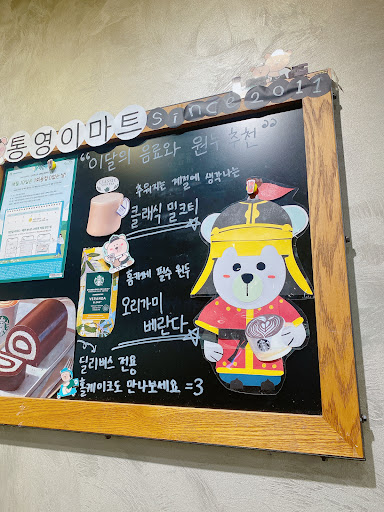 통영이마트 since 2011
"이달의 음료와 원두 추천"
추워지는 계절에 생각나는
클래식 밀크티
홈카페 필수 원두
오리가미
베란다
VERANDA
딜리버스 전용
홀케이크도 만나보세요 =3